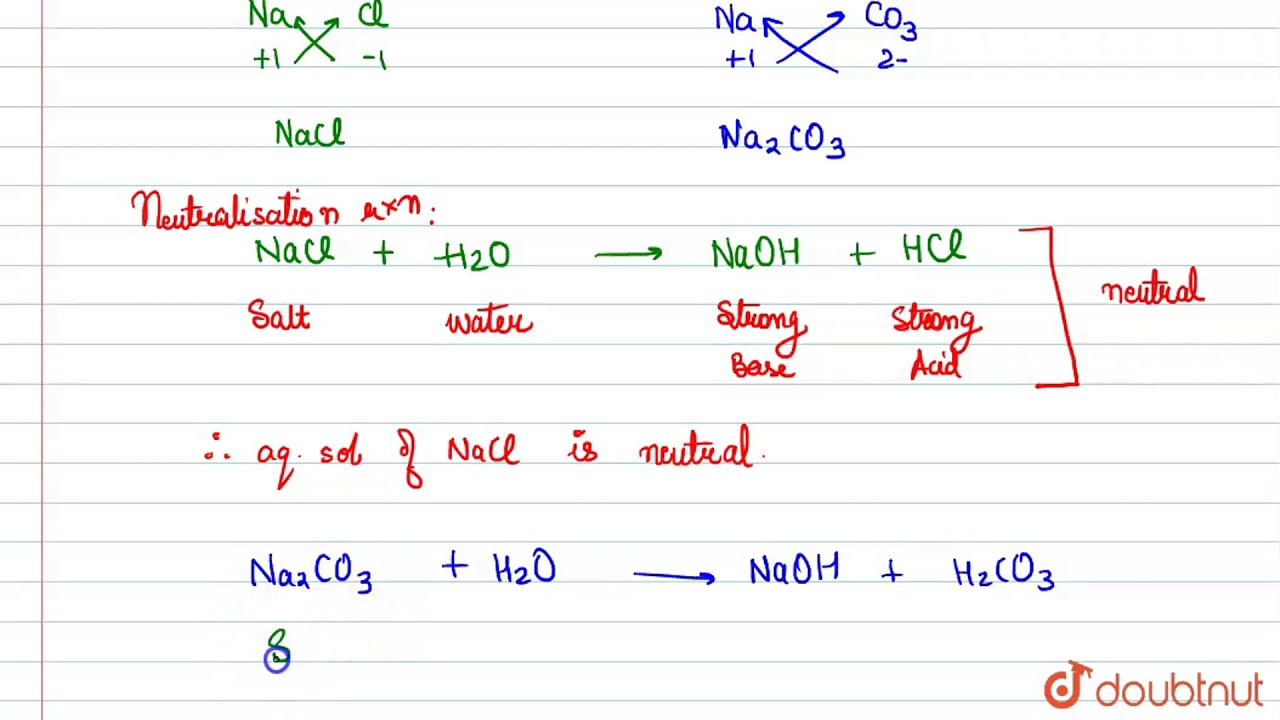 Na Cl Na CO3
+1 -1 +1 2-
NaCl Na2CO3
Neutralisation rxn:
NaCl + H2O → NaOH + HCl
neutral
Salt water Strong Strong
Base Acid
∴ aq. sol of NaCl is neutral.
Na2CO3 + H2O → NaOH + H2CO3
S
doubtnut